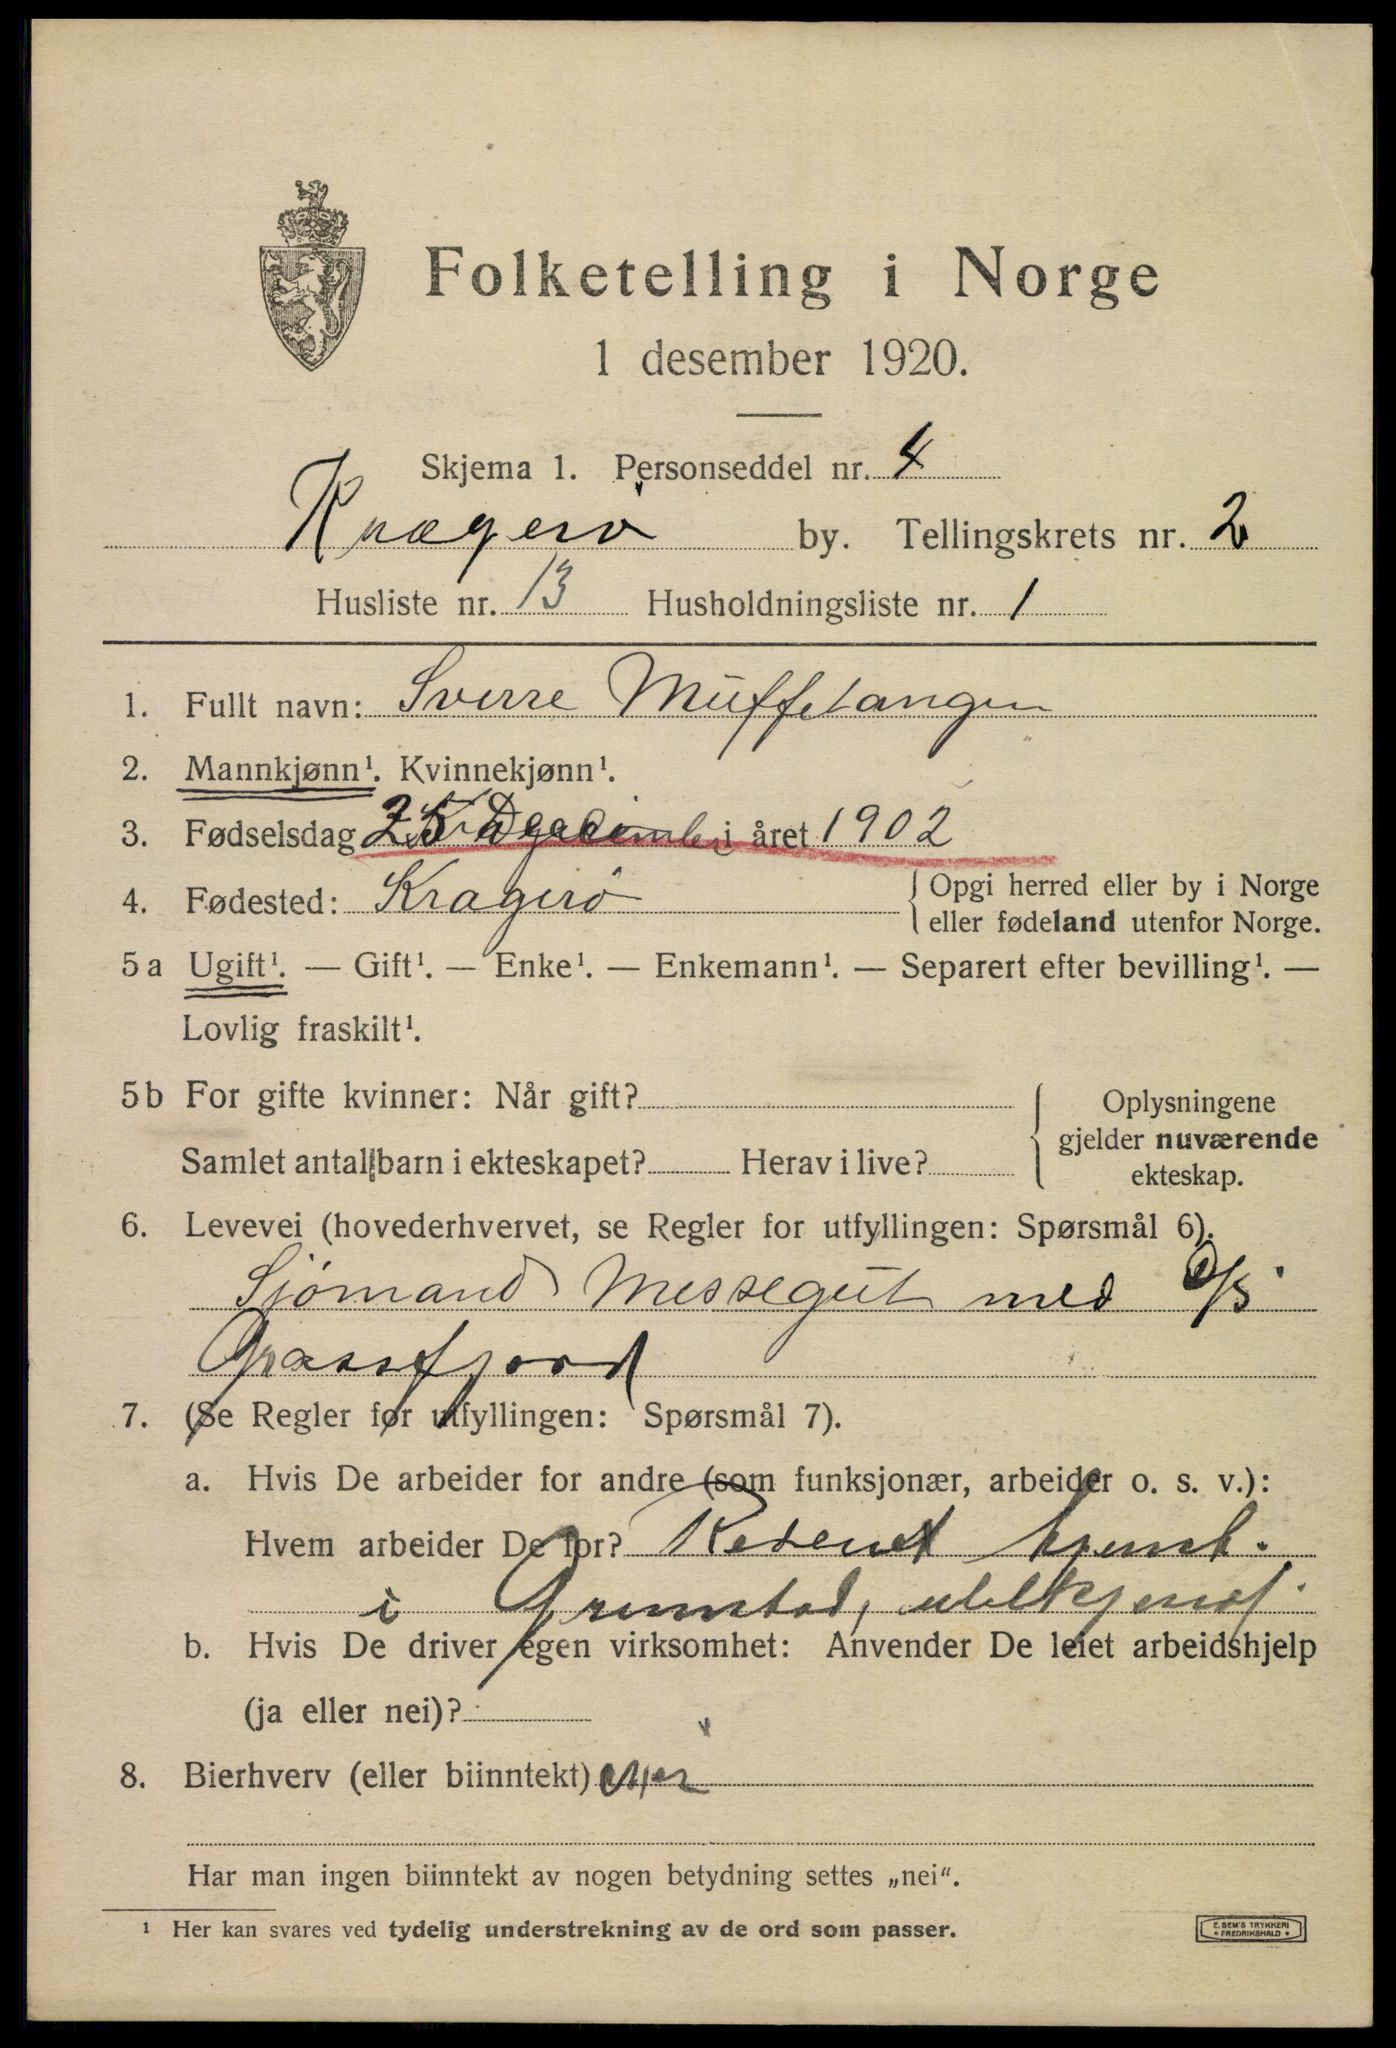 Folketelling i Norge
1 desember 1920.
Skjema 1. Personseddel nr. 4
Kragerö by. Tellingskrets nr. 2
Husliste nr. 13 Husholdningsliste nr. 1
1. Fullt navn: Sverre Müffetangen
2. Mannkjønn¹. Kvinnekjønn¹.
3. Fødselsdag 25 December i året 1902
4. Fødested: Kragerö { Opgi herred eller by i Norge
eller fødeland utenfor Norge.
5 a Ugift¹. — Gift¹. — Enke¹. — Enkemann¹. — Separert efter bevilling¹. —
Lovlig fraskilt¹.
5 b For gifte kvinner: Når gift?
Samlet antal barn i ekteskapet? Herav i live?
{ Oplysningene
gjelder nuværende
ekteskap.
6. Levevei (hovederhvervet, se Regler for utfyllingen: Spørsmål 6).
Sjömand Messegut med D/S
7. (Se Regler for utfyllingen: Spørsmål 7).
a. Hvis De arbeider for andre (som funksjonær, arbeider o. s. v.):
Hvem arbeider De for? Rederiet
i Grimstad,
b. Hvis De driver egen virksomhet: Anvender De leiet arbeidshjelp
(ja eller nei)?
8. Bierhverv (eller biinntekt) nei
Har man ingen biinntekt av nogen betydning settes „nei“.
¹ Her kan svares ved tydelig understrekning av de ord som passer.
E. SEM'S TRYKKERI
FREDRIKSHALD